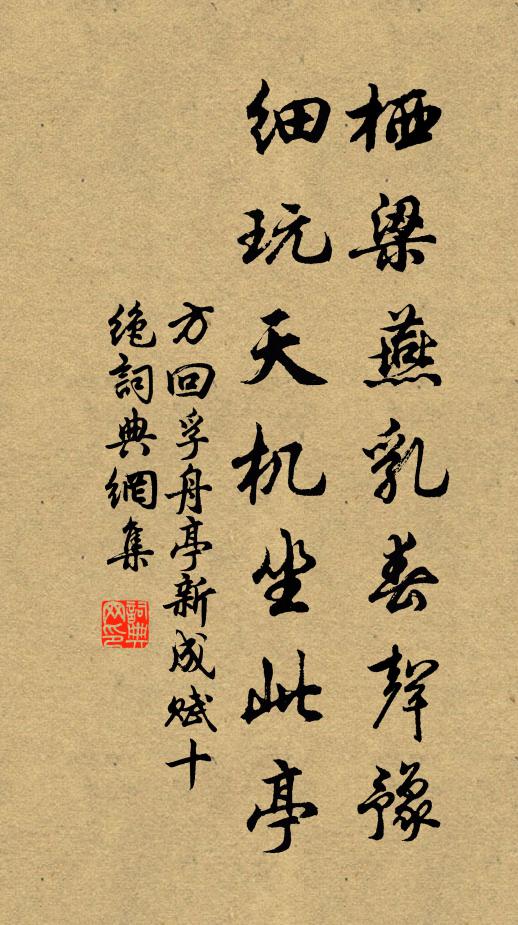 栖梁燕乳春聲豫
细玩天机坐此亭
方回孚舟亭新成赋十
绝詞典網集
詞典网印